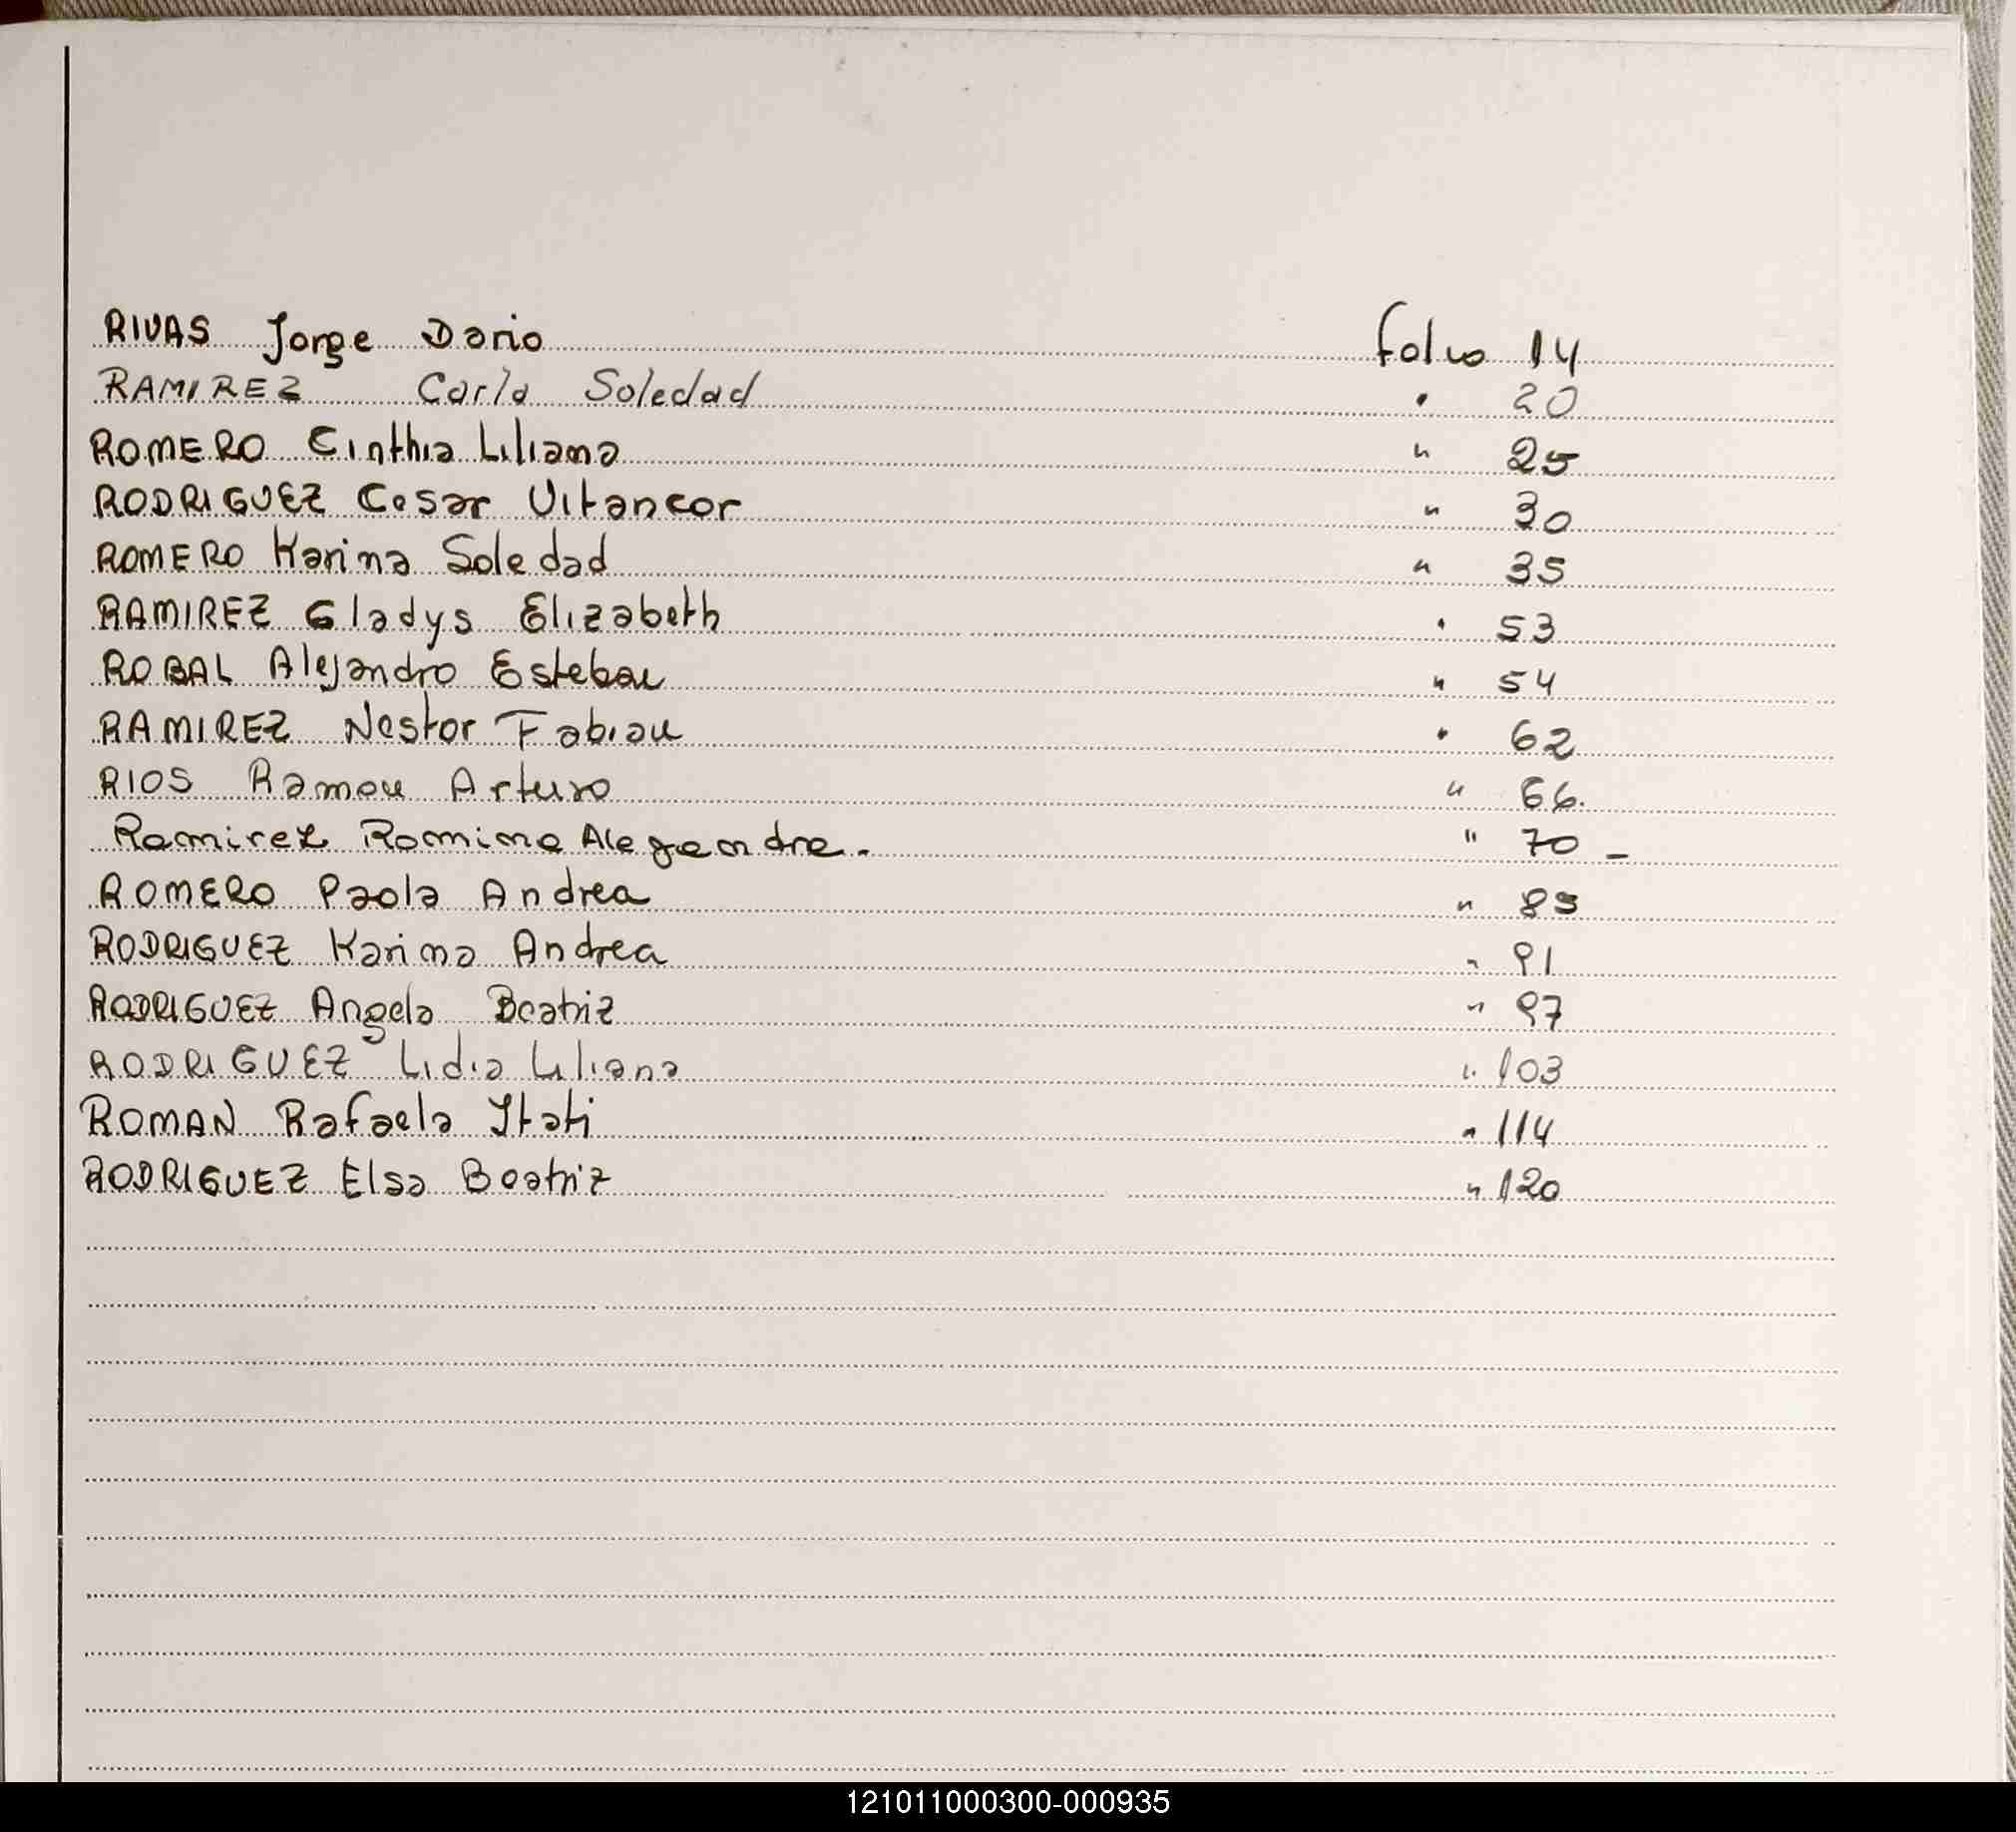 RIVAS Jorge Dario folio 14
RAMIREZ Carla Soledad " 20
ROMERO Cinthia Liliana " 25
RODRIGUEZ Cesar Vitancor " 30
ROMERO Karina Soledad " 35
RAMIREZ Gladys Elizabeth " 53
ROBAL Alejandro Esteban " 54
RAMIREZ Nestor Fabian " 62
RIOS Ramon Arturo " 66.
Ramirez Romina Alegandra. " 70 -
ROMERO Paola Andrea " 89
RODRIGUEZ Karina Andrea " 91
RODRIGUEZ Angela Beatriz " 97
RODRIGUEZ Lidia Liliana " 103
ROMAN Rafaela Itati " 114
RODRIGUEZ Elsa Beatriz " 120
121011000300-000935